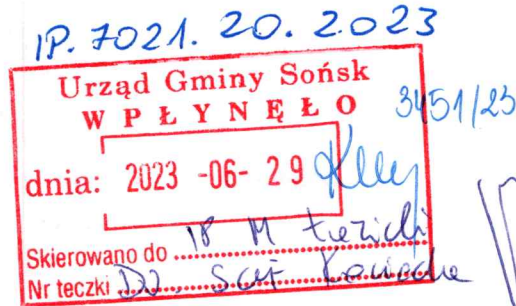 IP. 7021. 20. 2023
Urząd Gminy Sońsk
WPŁYNĘŁO
3451/23
dnia: 2023 -06- 29
Skierowano do IP M
Nr teczki